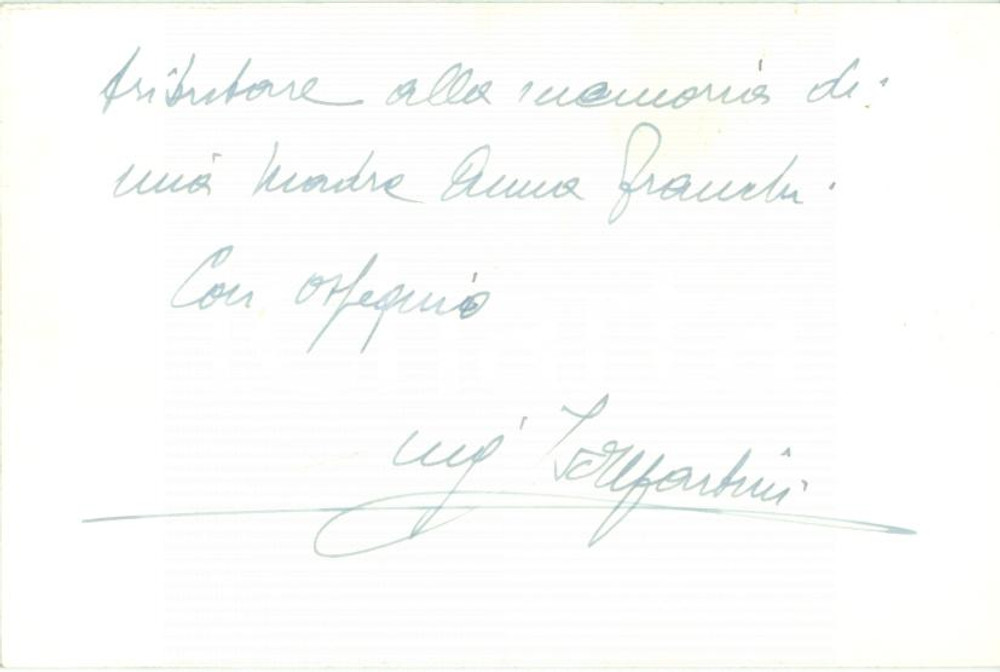 tributare alla memoria di
mia Madre Anna Franchi.
Con ossequio
Martini